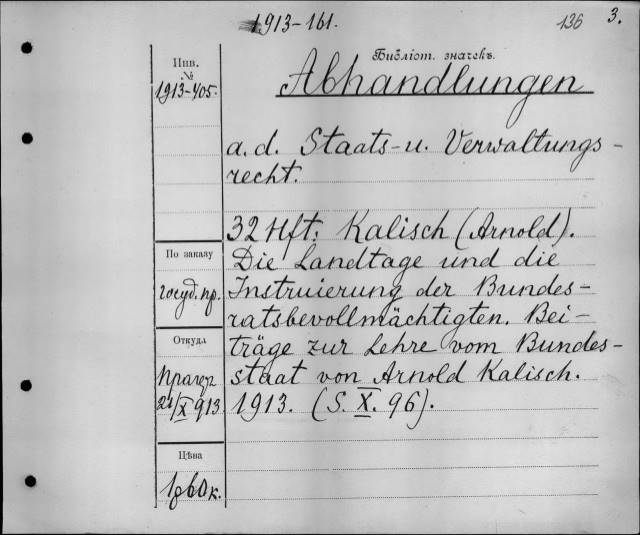 1913-161.
136
3.
Инв.
№
1913-405.
Библіот. значекъ.
Abhandlungen
a. d. Staats- u. Verwaltungs-
recht.
32 Hft: Kalisch (Arnold).
Die Landtage und die
Instruierung der Bundes-
ratsbevollmächtigten. Bei-
träge zur Lehre vom Bundes-
staat von Arnold Kalisch.
1913. (S. X. 96).
По заказу
госуд. пр.
Откуда
Прагер
21/X 913
Цѣна
1р 60к.